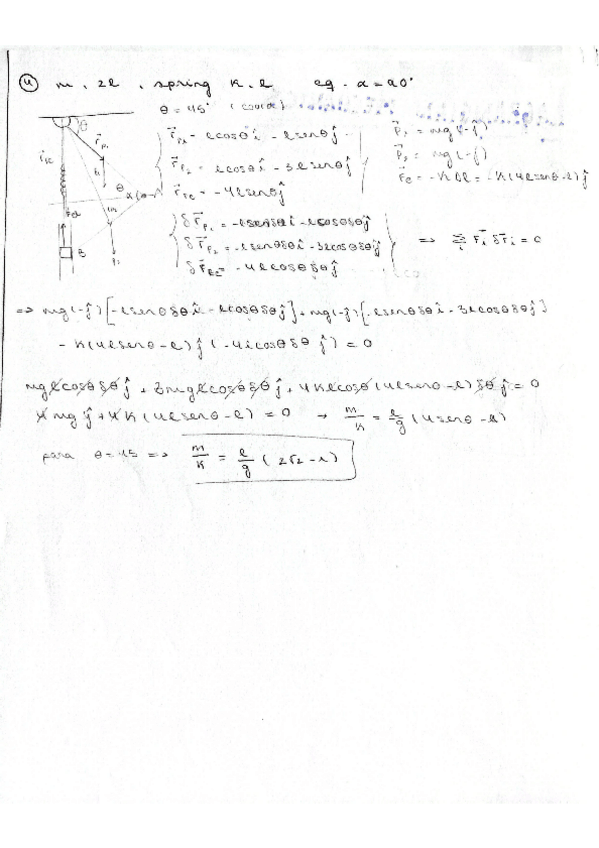 ④ m, 2l, spring K, l eq. α = 90°
θ = 45° (coord)
r⃗P1 = l cosθ î - l senθ ĵ
r⃗P2 = l cosθ î - 3l senθ ĵ
r⃗Fe = -4l senθ ĵ
P⃗1 = mg(-ĵ)
P⃗2 = mg(-ĵ)
F⃗e = -K Δl = -K(4l senθ - l) ĵ
δr⃗P1 = -l senθ δθ î - l cosθ δθ ĵ
δr⃗P2 = -l senθ δθ î - 3l cosθ δθ ĵ
δr⃗Fe = -4l cosθ δθ ĵ
⇒ Σi F⃗i δr⃗i = 0
⇒ mg(-ĵ)[-l senθ δθ î - l cosθ δθ ĵ] + mg(-ĵ)[-l senθ δθ î - 3l cosθ δθ ĵ]
- K(4l senθ - l) ĵ (-4l cosθ δθ ĵ) = 0
mgl cosθ δθ ĵ + 3mgl cosθ δθ ĵ + 4Kl cosθ (4l senθ - l) δθ ĵ = 0
4mg ĵ + 4K(4l senθ - l) = 0 → m/K = l/g (4 senθ - 1)
para θ = 45 ⇒ m/K = l/g (2√2 - 1)